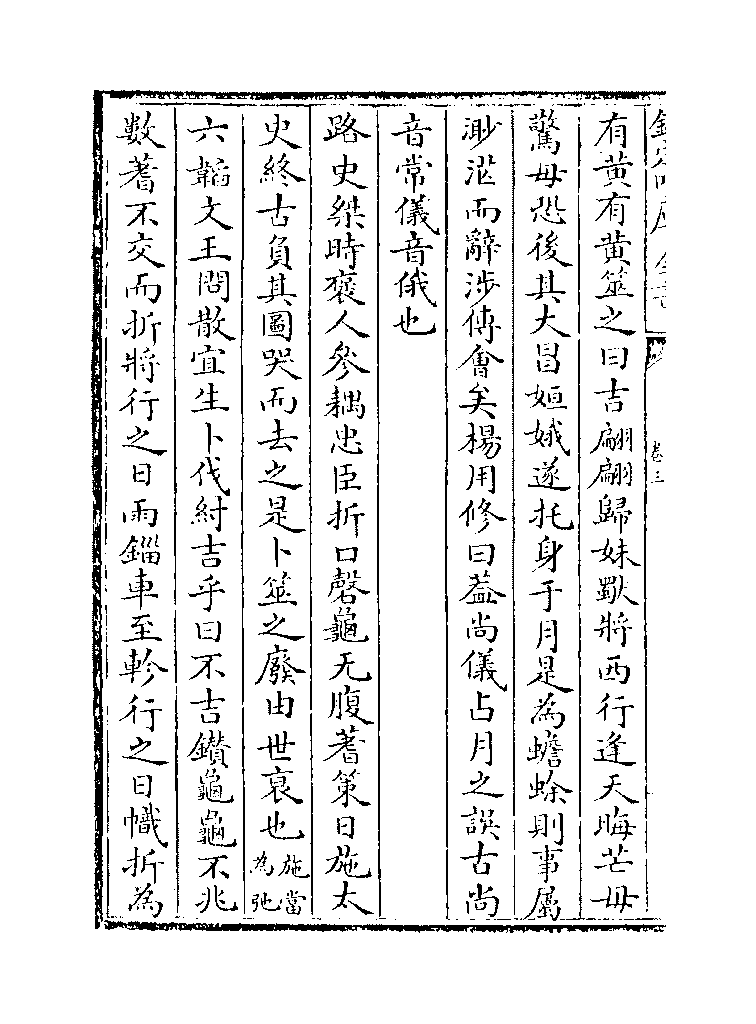 欽定四庫全書
卷三
有黄有黄筮之曰吉翩翩歸妹獸將西行逢天晦芒毋
驚毋恐後其大昌姮娥遂托身于月是為蟾蜍則事屬
渺茫而辭渉傅會矣楊用修曰葢尚儀占月之誤古尚
音常儀音俄也
路史桀時褒人參耦忠臣折口磬龜无腹蓍策日施太
史終古負其圖哭而去之是卜筮之廢由世衰也施當為弛
六韜文王問散宜生卜伐紂吉乎曰不吉鑚龜龜不兆
數蓍不交而折將行之日雨輜車至軫行之日幟折為